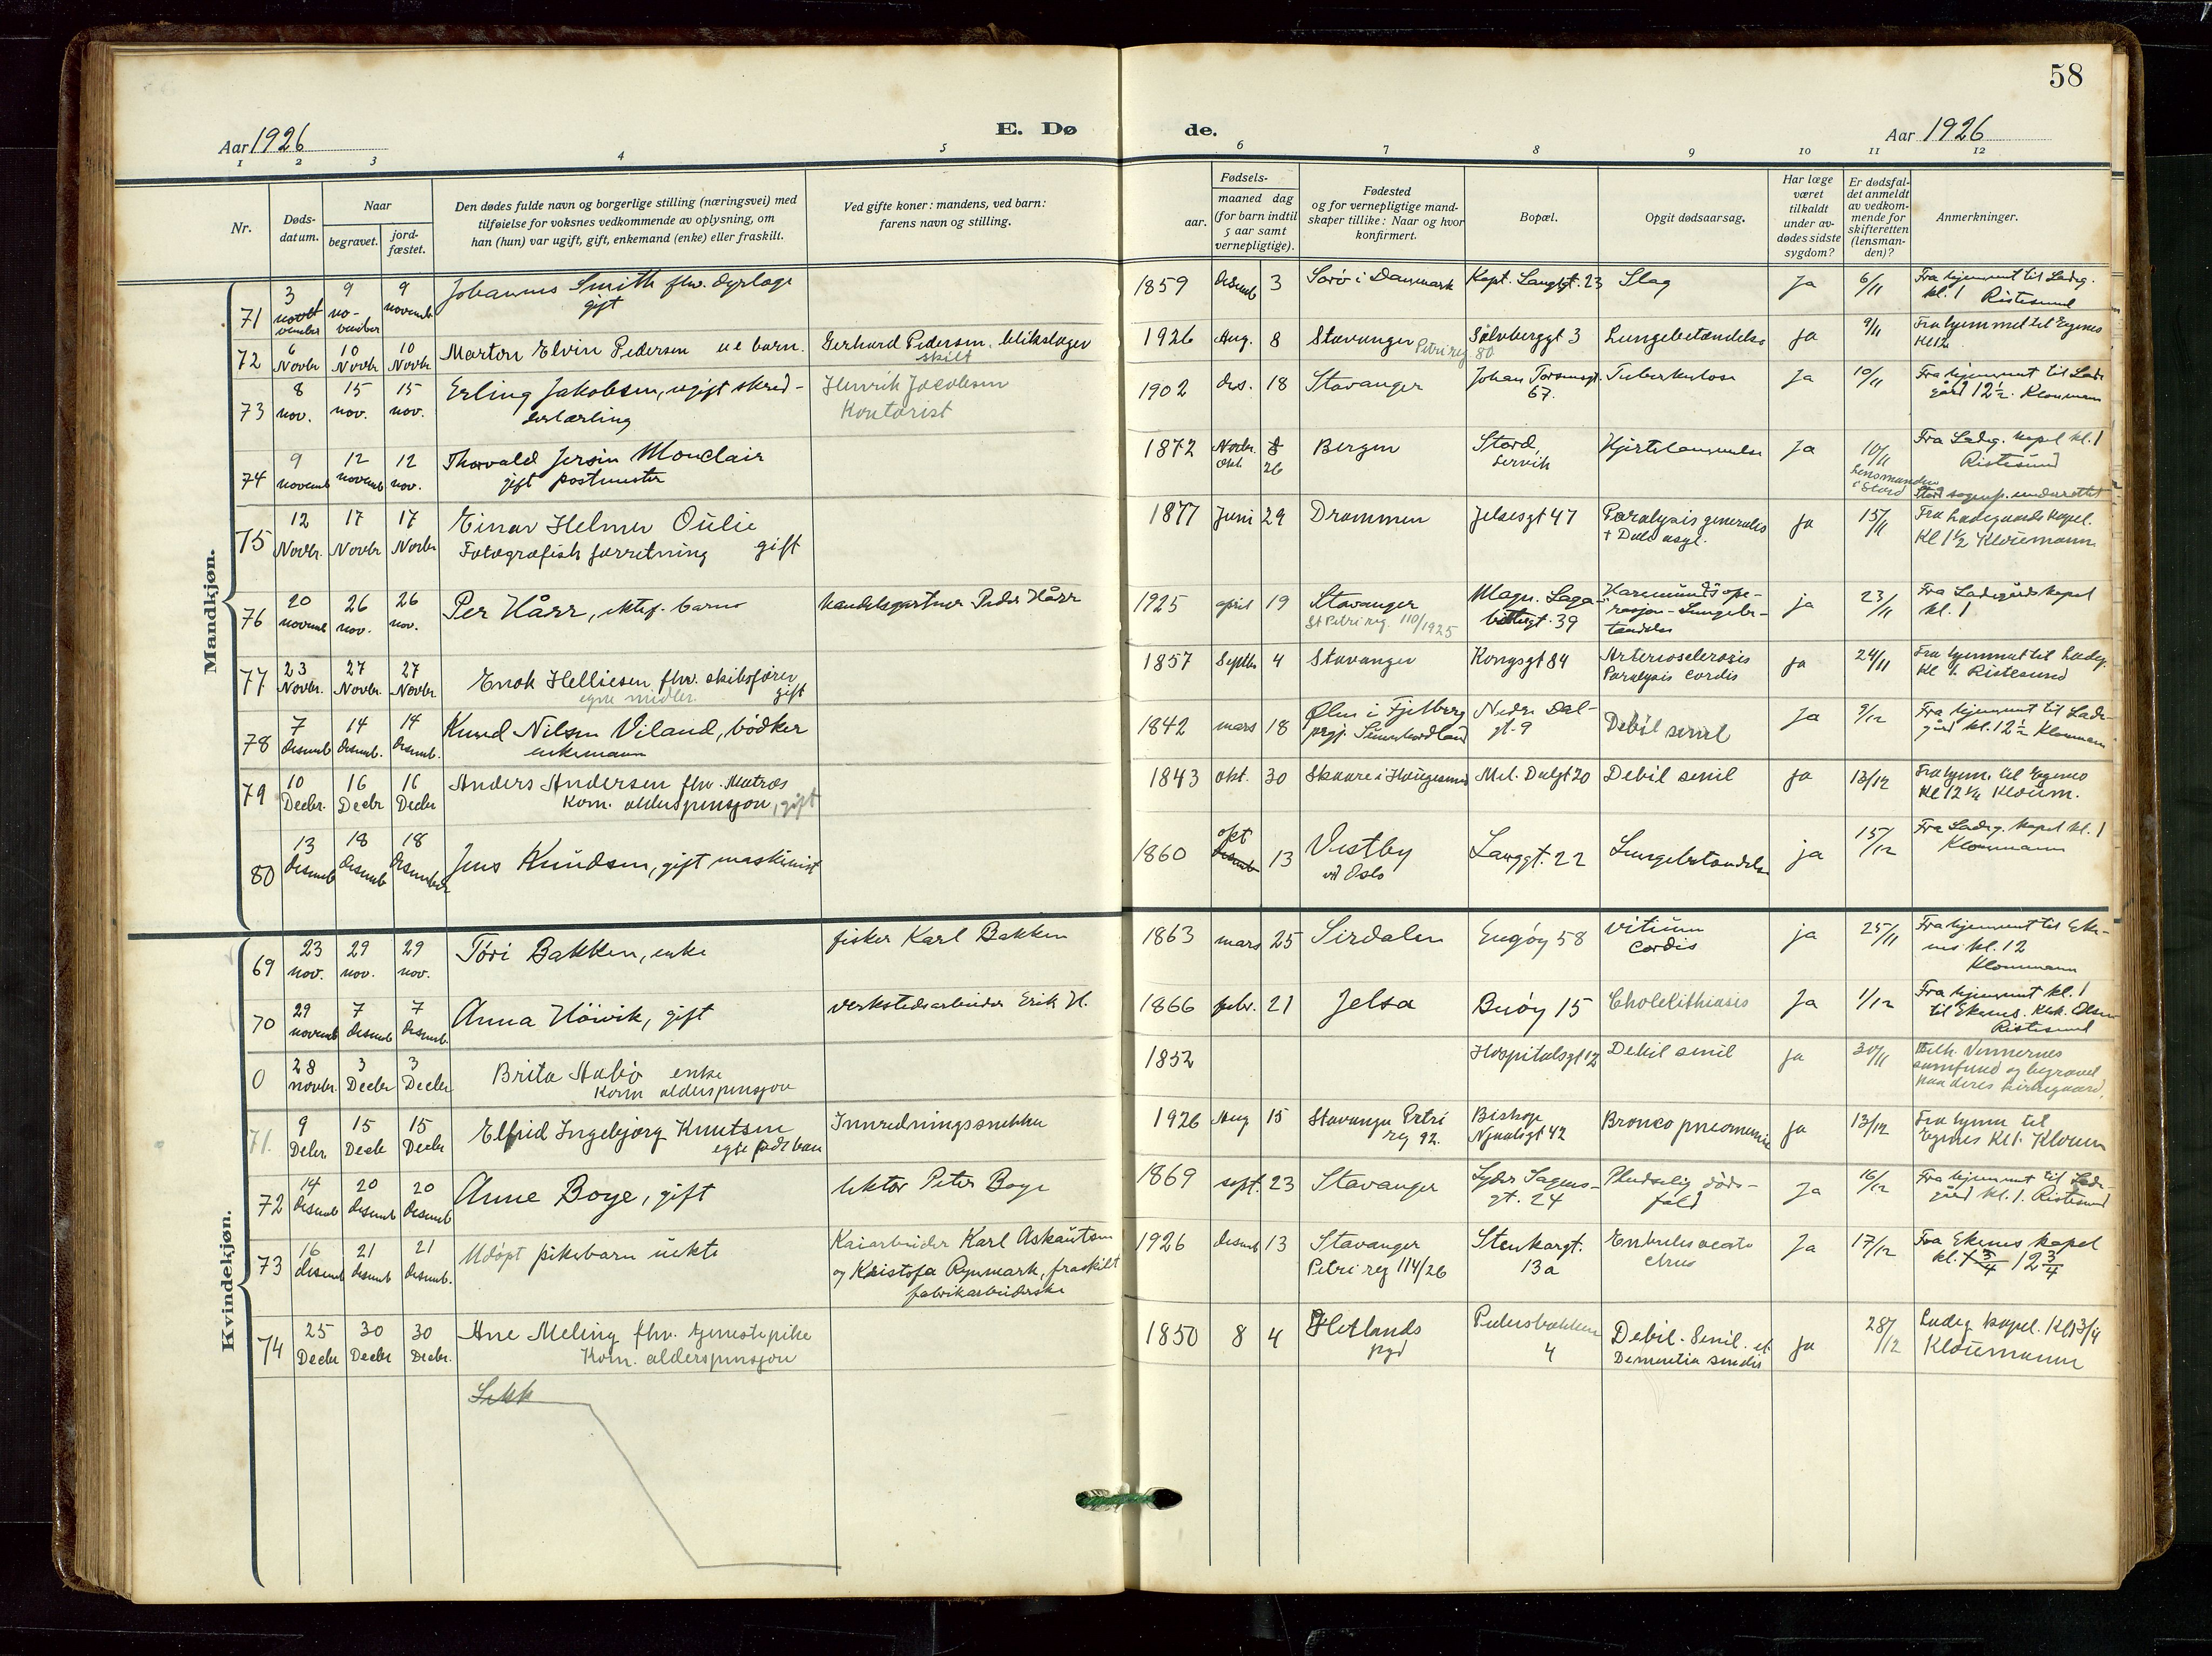 58
Aar 1926
E. Dø
de.
Aar 1926
1 2 3 4 5 6 7 8 9 10 11 12
Nr.
Døds-
datum.
Naar
begravet.
jord-
fæstet.
Den dødes fulde navn og borgerlige stilling (næringsvei) med
tilføielse for voksnes vedkommende av oplysning, om
han (hun) var ugift, gift, enkemand (enke) eller fraskilt.
Ved gifte koner: mandens, ved barn:
farens navn og stilling.
Fødsels-
aar.
maaned dag
(for barn indtil
5 aar samt
vernepligtige).
Fødested
og for vernepligtige mand-
skaper tillike: Naar og hvor
konfirmert.
Bopæl.
Opgit dødsaarsag.
Har læge
været
tilkaldt
under av-
dødes sidste
sygdom?
Er dødsfal-
det anmeldt
av vedkom-
mende for
skifteretten
(lensman-
den)?
Anmerkninger.
Mandkjøn.
71
3
vember
9
no-
vember
9
novemb
Johannes Smith fhv. dyrlæge
gift
1859
desemb
3
Sorö i Danmark
Kapt. Langgt. 23
Slag
Ja
6/11
Fra hjemmet til Ladeg.
kl. 1 Ristesund
72
6
Novbr
10
Novbr
10
Novbr
Marton Elvin Pedersen ue barn.
Gerhard Pedersen, blikslager
skilt
1926
Aug.
8
Stavanger
Petri reg 80
Sølvberggt 3
Lungebetændelse
Ja
9/11
Fra hjemmet til Egenes
Kl 12
73
8
nov.
15
nov.
15
nov.
Erling Jakobsen, ugift skred-
derlærling
Henrik Jacobsen
Kontorist
1902
des.
18
Stavanger
67.
Tuberkulose
Ja
10/11
Fra hjemmet til Lade-
gård 12½. Kloumann
74
9
novemb
12
novemb
12
nov.
Thorvald Jersin Monclair
gift postmester
1872
Novbr.
Okt.
8
26
Bergen
Stord,
Lervik
Hjertelammelse
Ja
10/11
Lensmanden
i Stord
Fra Ladeg. kapel kl. 1
Ristesund
Stord sogenp. underrettet
75
12
Novbr.
17
Novbr
17
Novbr
Einar Helmer Oulie
Fotografisk forretning gift
1877
Juni
29
Drammen
Jelsesgt 47
Paralysis generales
ja
15/11
Fra Ladegaards kapel.
Kl 1½ Kloumann
76
20
novemb
26
nov.
26
nov.
Per Hårr, ektef. barn
Handelsgartner Peder Hårr
1925
april
19
Stavanger
St Petri reg. 110/1925
Magn. Laga-
bøtersgt. 39
Haremunds ope-
rasjon - Lungebe-
tændelse
ja
23/11
Fra Ladegårds kapel
kl. 1
77
23
Novbr.
27
Novbr
27
Novbr
Enok Helliesen fhv. skibsfører
egne midler. gift
1857
Septb.
4
Stavanger
Kongsgt 84
Arteriosclerosis
Paralysis cordis
ja
24/11
Fra hjemmet til Ladeg.
Kl 1. Ristesund
78
7
desemb
14
desemb.
14
desemb.
Knud Nilsen Viland, bödker
enkemann
1842
mars
18
Ølen i Fjelberg
prgj. Sunnhordland
Nedre Dal-
gt. 9
Debil senil
Ja
9/12
Fra hjemmet til Lade-
gård kl. 12½ Kloumann
79
10
Decbr.
16
Decbr
16
Decbr
Anders Andersen fhv. Matros
Kom. alderspensjon, gift
1843
okt.
30
Skaare i Haugesund
Mel. Dalgt 20
Debil senil
ja
13/12
Fra hjem. til Egenes
Kl 12¼ Kloum.
80
13
desemb
18
desemb
18
desember
Jens Knudsen, gift maskinist
1860
okt
desemb
13
Vestby
vd Oslo
Langgt. 22
Lungebetændelse
ja
15/12
Fra Ladeg. kapel kl. 1
Kloumann
Kvindekjøn.
69
23
nov.
29
nov.
29
nov.
Tóri Bakken, enke
fisker Karl Bakken
1863
mars
25
Sirdalen
Engöy 58
vitium
Cordis
ja
25/11
Fra hjemmet til Eke-
nes kl. 12
Kloumann
70
29
novemb
7
desemb
7
desemb.
Anna Höivik, gift
verkstedsarbeider Erik H.
1866
febr.
21
Jelsa
Buöy 15
Cholelithiasis
Ja
1/12
Fra hjemmet kl. 1
til Ekenes. Olsen
Ristesund
0
28
novbr
3
Decbr
3
Decbr
Brita Aabö enke
Kom alderspensjon
1852
Hospitalsgt 12
Debil senil
ja
30/11
Tilh. Vennernes
samfund og begravet
paa deres kirkegaard.
71.
9
Debr
15
Decbr
15
Decbr
Elfrid Ingebjørg Knutsen
egte født barn
Innredningssnekker
1926
Aug
15
Stavanger Petri
reg 92.
Bishop
Njaalsgt 42
Bronco pneomonie
ja
13/12
Fra hjem til
Egenes Kl 1. Kloum
72
14
desemb
20
desemb
20
desemb
Anne Boye, gift
lektor Peter Boye
1869
sept.
23
Stavanger
Lyder Sagens-
gt. 24
Pludselig döds-
fald
Ja
16/12
Fra hjemmet til Lade-
gård kl. 1. Ristesund
73
16
desemb
21
desemb
21
desemb.
Udöpt pikebarn uekte
Kaiarbeider Karl Asknutsen
og Kristofa Rynmark, fraskilt
fabrikarbeiderske
1926
desemb
13
Stavanger
Petri reg 114/26
Stenkargt.
13a
Ja
17/12
Fra Ekenes kapel
kl. 1¾ 12¾
74
25
Decbr
30
Decbr
30
Decbr.
Ane Meling fhv. tjenestepike
Kom. alderspensjon
1850
8
4
Hetlands
pgd
Pedersbakken
4
Debil. Senil. et
Dementia senilis
ja
28/12
Ladeg kapel. Kl 13/4
Kloumann